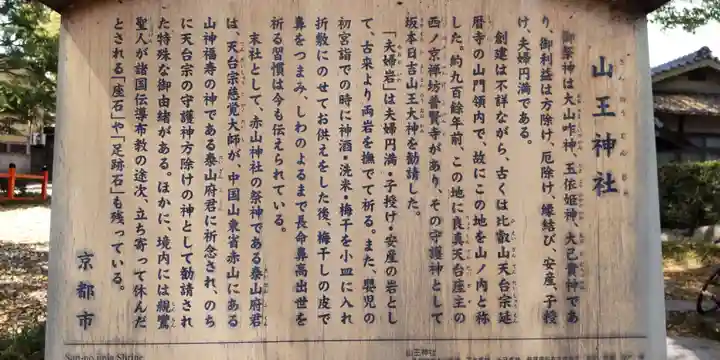 山王神社
さんのうじんじゃ
御祭神は大山咋神、玉依姫神、大己貴神であ
り、御利益は方除け、厄除け、縁結び、安産、子授
け、夫婦円満である。
創建は不詳ながら、古くは比叡山天台宗延
暦寺の山門領内で、故にこの地を山ノ内と称
した。約九百餘年前、この地に良真天台座主の
西ノ京禅坊普賢寺があり、その守護神として
坂本日吉山王大神を勧請した。
「夫婦岩」は夫婦円満・子授け・安産の岩とし
て、古来より両岩を撫でて祈る。また、嬰児の
初宮詣での時に神酒・洗米・梅干を小皿に入れ
折敷にのせてお供えをした後、梅干しの皮で
鼻をつまみ、しわのよるまで長命鼻高出世を
祈る習慣は今も伝えられている。
末社として、赤山神社の祭神である泰山府君
は、天台宗慈覚大師が、中国山東省赤山にある
山神福寿の神である泰山府君に祈念され、のち
に天台宗の守護神方除けの神として勧請され
た特殊な御由緒がある。ほかに、境内には親鸞
聖人が諸国伝導布教の途次、立ち寄って休んだ
とされる「座石」や「足跡石」も残っている。
京都市
San-no-jinja Shrine
山王神社